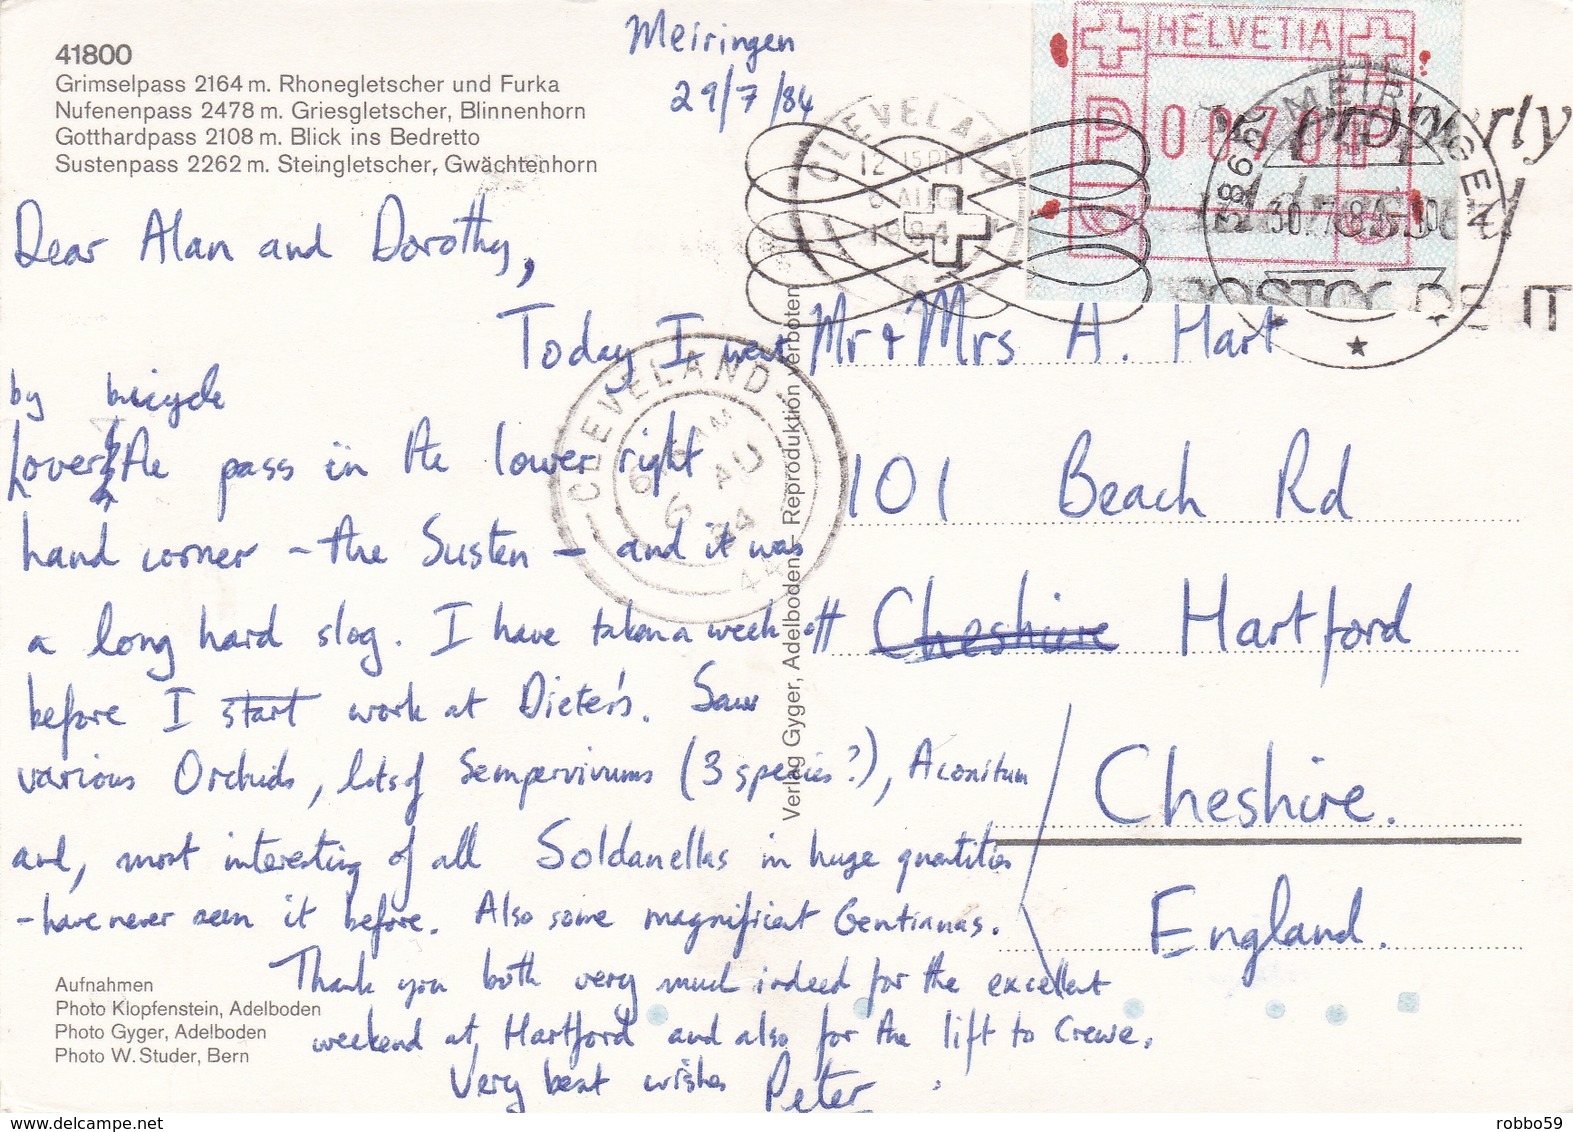 41800
Grimselpass 2164 m. Rhonegletscher und Furka
Nufenenpass 2478 m. Griesgletscher, Blinnenhorn
Gotthardpass 2108 m. Blick ins Bedretto
Sustenpass 2262 m. Steingletscher, Gwächtenhorn
Meiringen
29/7/84
HELVETIA
P 0070 P
3860 MEIRINGEN
30.7.84
CLEVELAND
12 15PM
6 AUG
1984
POSTCODE IT
Dear Alan and Dorothy,
Today I went
by bicycle
over the pass in the lower right
hand corner - the Susten - and it was
a long hard slog. I have taken a week off
before I start work at Dieter's. Saw
various Orchids, lots of Sempervivums (3 species?), Aconitum
and, most interesting of all Soldanellas in huge quantities
- have never seen it before. Also some magnificent Gentianas.
Thank you both very much indeed for the excellent
weekend at Hartford and also for the lift to Crewe.
Very best wishes Peter
CLEVELAND
6 AU
84
44
Verlag Gyger, Adelboden – Reproduktion verboten
Mr & Mrs A. Hart
101 Beach Rd
Cheshire Hartford
Cheshire.
England.
Aufnahmen
Photo Klopfenstein, Adelboden
Photo Gyger, Adelboden
Photo W. Studer, Bern
delcampe.net
robbo59